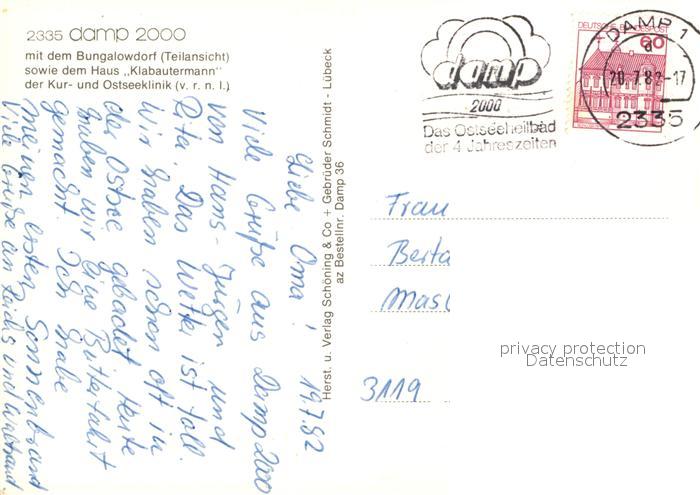 2335 damp 2000
mit dem Bungalowdorf (Teilansicht)
sowie dem Haus „Klabautermann"
der Kur- und Ostseeklinik (v. r. n. l.)
Liebe Oma! 19.7.82
Viele Grüße aus Damp 2000
von Hans-Jürgen und
Rita. Das Wetter ist toll.
Wir haben schon oft in
der Ostsee gebadet. Heute
haben wir eine Butterfahrt
gemacht. Ich habe
meinen ersten Sonnenbrand
Viele Grüße an und
Herst. u. Verlag Schöning & Co + Gebrüder Schmidt - Lübeck
az Bestellnr. Damp 36
damp
2000
Das Ostseeheilbad
der 4 Jahreszeiten
DEUTSCHE BUNDESPOST
60
DAMP 1
a
20.7.82-17
2335
Frau
Berta
Mas
3119
privacy protection
Datenschutz